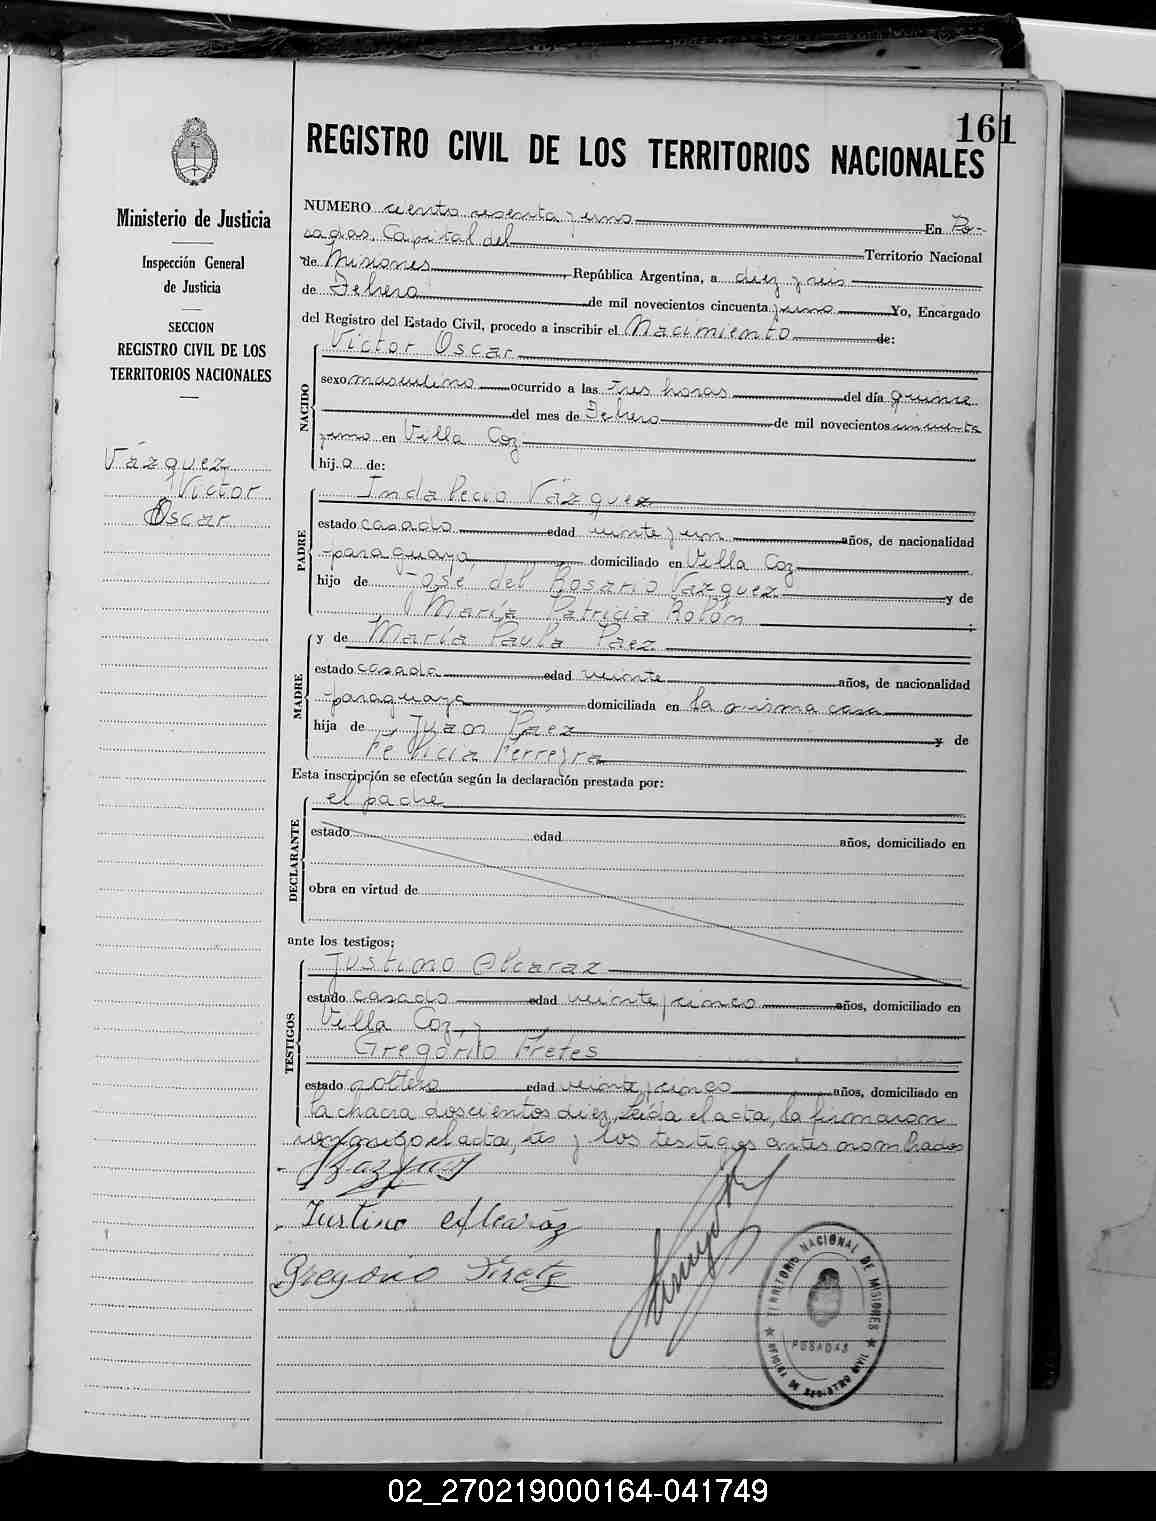 161
REGISTRO CIVIL DE LOS TERRITORIOS NACIONALES
Ministerio de Justicia
Inspección General
de Justicia
SECCION
REGISTRO CIVIL DE LOS
TERRITORIOS NACIONALES
Vázquez
Victor
Oscar
NUMERO ciento sesenta y uno En Po-
sadas, Capital del Territorio Nacional
de Misiones República Argentina, a diez y seis
de Febrero de mil novecientos cincuenta y uno Yo, Encargado
del Registro del Estado Civil, procedo a inscribir el Nacimiento de:
NACIDO
Victor Oscar
sexo masculino ocurrido a las tres horas del día quince
del mes de Febrero de mil novecientos cincuenta
y uno en Villa Coz
hij.o de:
PADRE
Indalecio Vázquez
estado casado edad veinte y un años, de nacionalidad
paraguaya domiciliado en Villa Coz
hijo de José del Rosario Vázquez y de
María Patricia Rolón ;
MADRE
y de María Paula Paez
estado casada edad veinte años, de nacionalidad
paraguaya domiciliada en la misma casa
hija de Juan Páez y de
Felicia Ferreyra
Esta inscripción se efectúa según la declaración prestada por:
DECLARANTE
el padre
estado edad años, domiciliado en
obra en virtud de
ante los testigos;
TESTIGOS
Justino Alcaraz
estado casado edad veinte y cinco años, domiciliado en
Villa Coz, y
Gregorio Fretes
estado soltero edad veinte y cinco años, domiciliado en
la chacra doscientos diez, Leída el acta, la firmaron
conmigo el y los testigos antes nombrados
Justino Alcaráz
Gregorio Frete
TERRITORIO NACIONAL DE MISIONES
POSADAS
OFICINA DE REGISTRO CIVIL
02_270219000164-041749